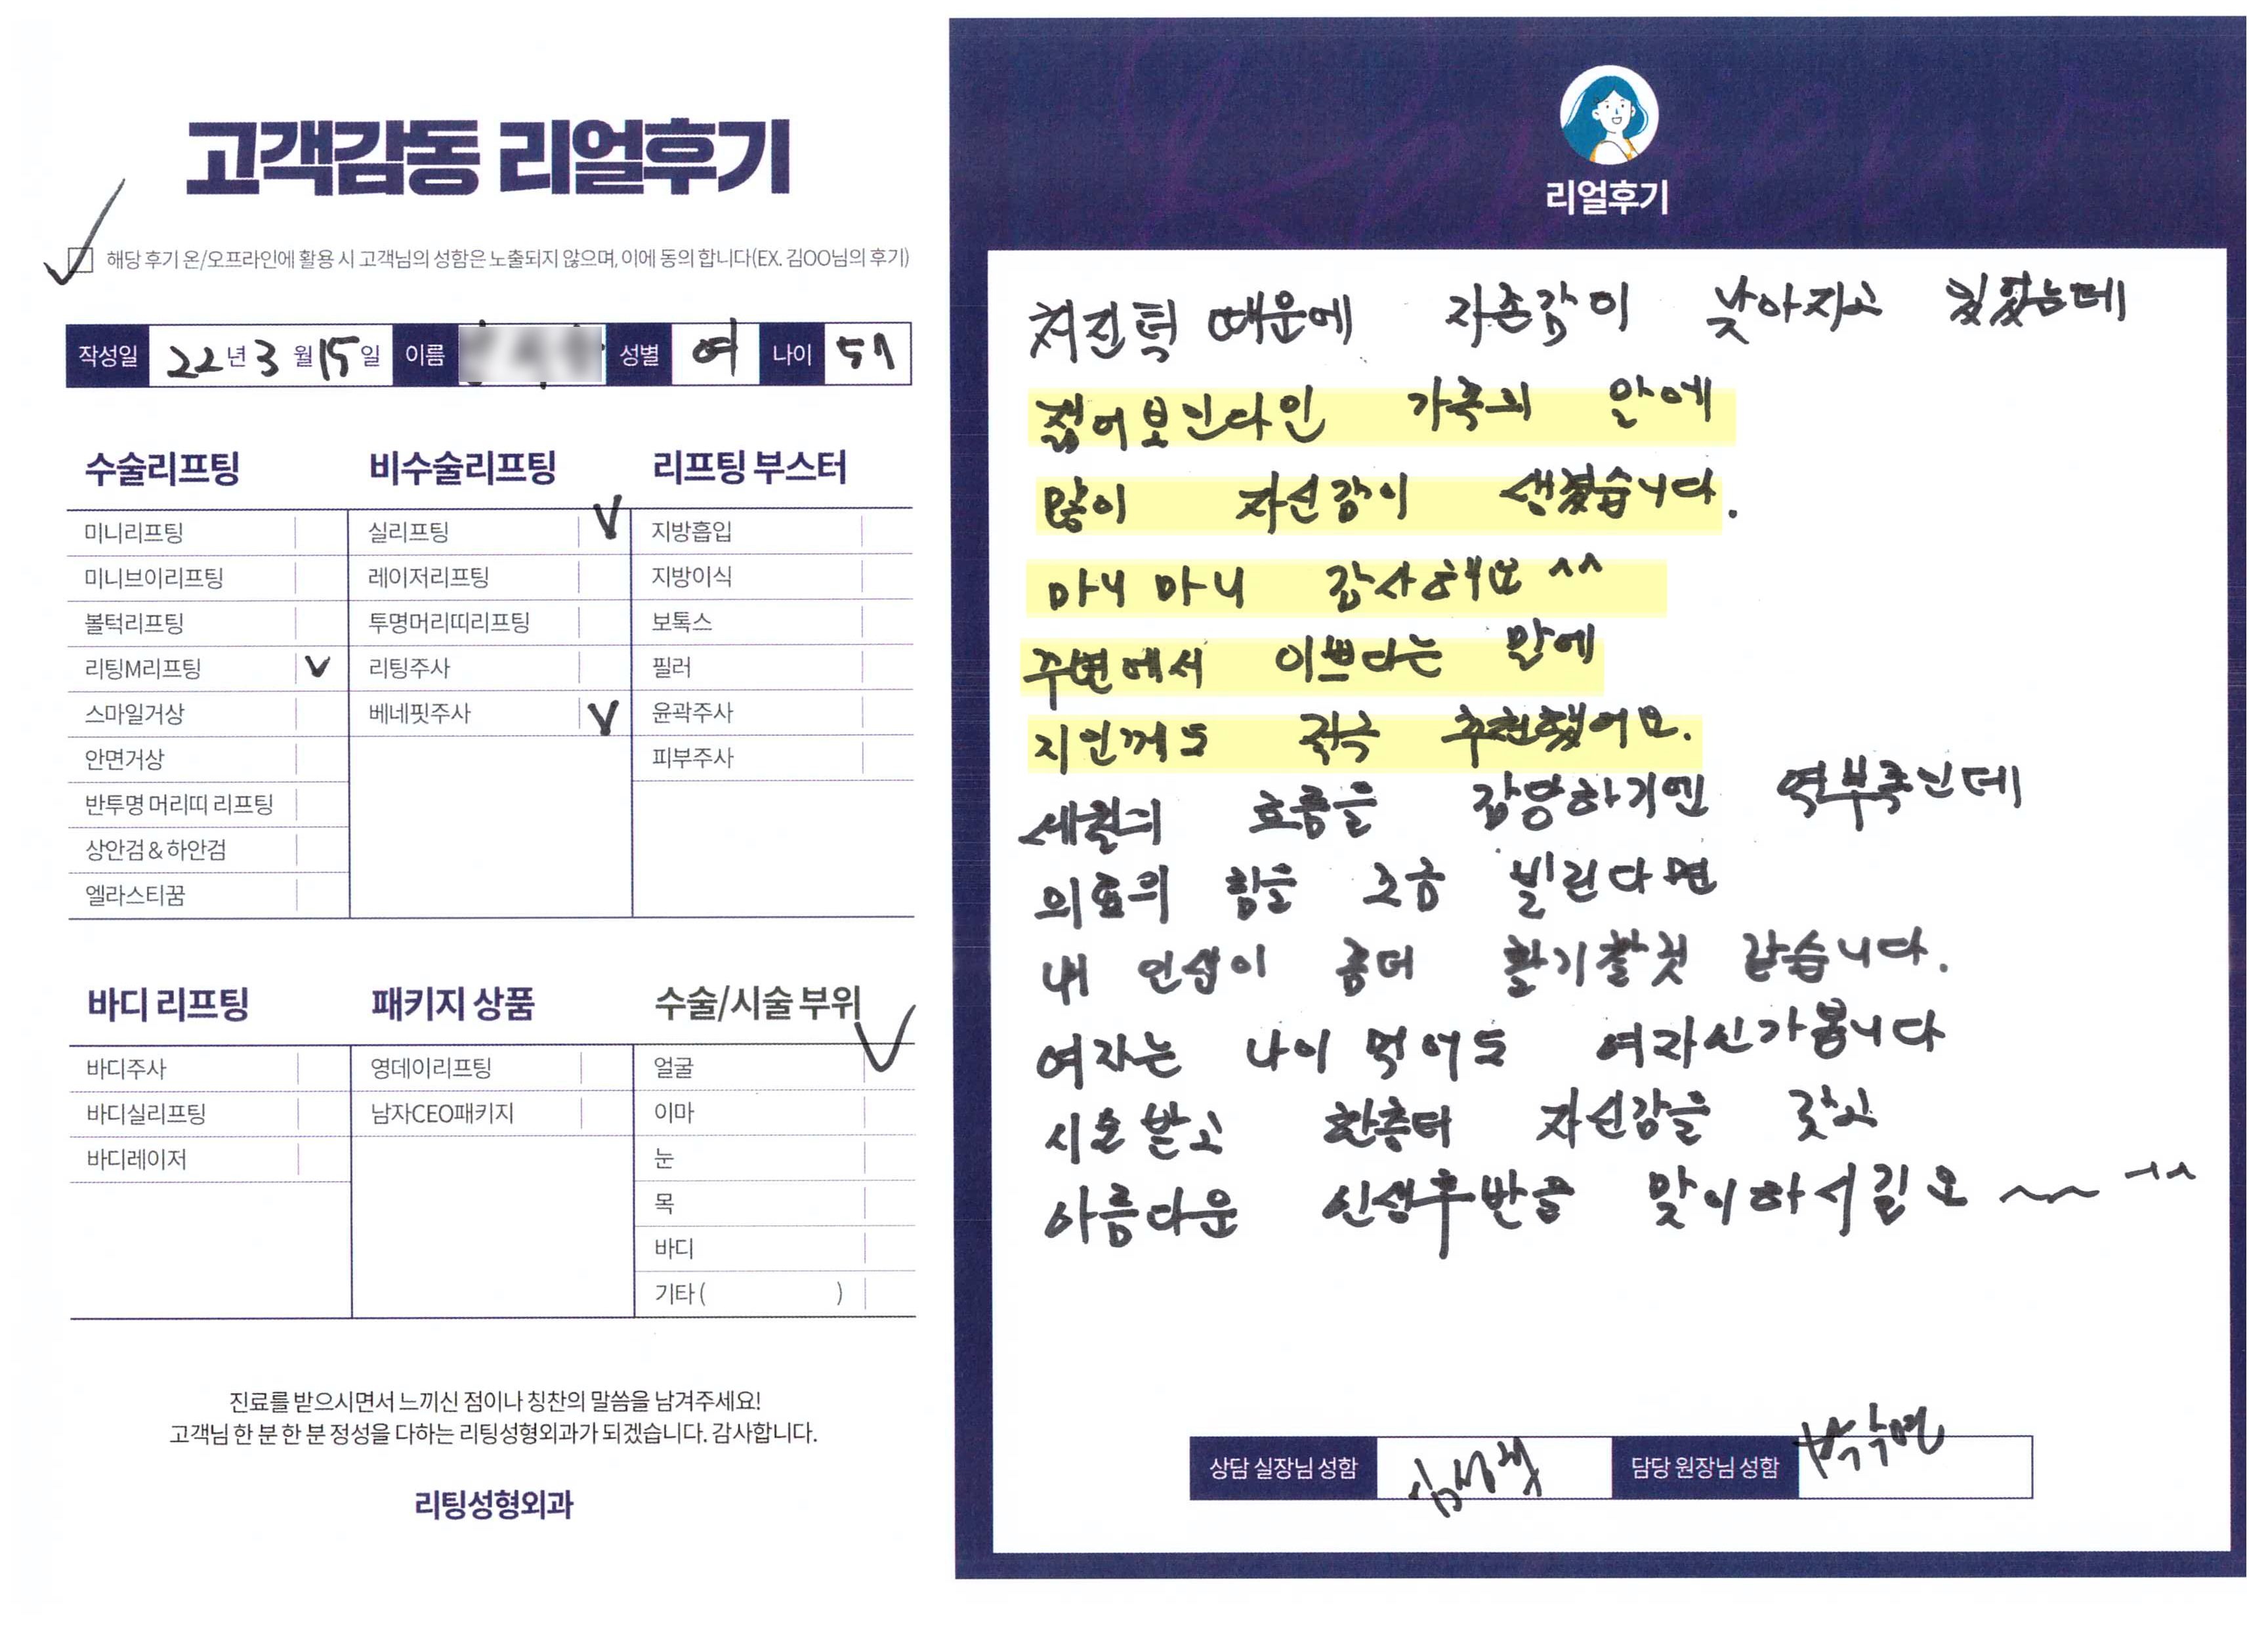 고객감동 리얼후기
해당 후기 온/오프라인에 활용 시 고객님의 성함은 노출되지 않으며, 이에 동의 합니다(EX. 김OO님의 후기)
작성일 22년 3월 15일 이름 성별 여 나이 57
수술리프팅 비수술리프팅 리프팅 부스터
미니리프팅 실리프팅 V 지방흡입
미니브이리프팅 레이저리프팅 지방이식
볼턱리프팅 투명머리띠리프팅 보톡스
리팅M리프팅 V 리팅주사 필러
스마일거상 베네핏주사 V 윤곽주사
안면거상 피부주사
반투명 머리띠 리프팅
상안검 & 하안검
엘라스티꿈
바디 리프팅 패키지 상품 수술/시술 부위
바디주사 영데이리프팅 얼굴 V
바디실리프팅 남자CEO패키지 이마
바디레이저 눈
목
바디
기타 ( )
진료를 받으시면서 느끼신 점이나 칭찬의 말씀을 남겨주세요!
고객님 한 분 한 분 정성을 다하는 리팅성형외과가 되겠습니다. 감사합니다.
리팅성형외과
리얼후기
처진턱 때문에 자존감이 낮아지고 있었는데
젊어보인다인 가족의 말에
많이 자신감이 생겼습니다.
마니 마니 감사해요 ^^
주변에서 이쁘다는 말에
지인께도 적극 추천했어요.
세월의 흐름을 감당하기엔 역부족인데
의료의 힘을 조금 빌린다면
내 인생이 좀더 활기찰것 같습니다.
여자는 나이 먹어도 여자신가봅니다
시술받고 한층더 자신감을 갖고
아름다운 인생후반을 맞이하시길요 ~~ ^^
상담 실장님 성함 담당 원장님 성함